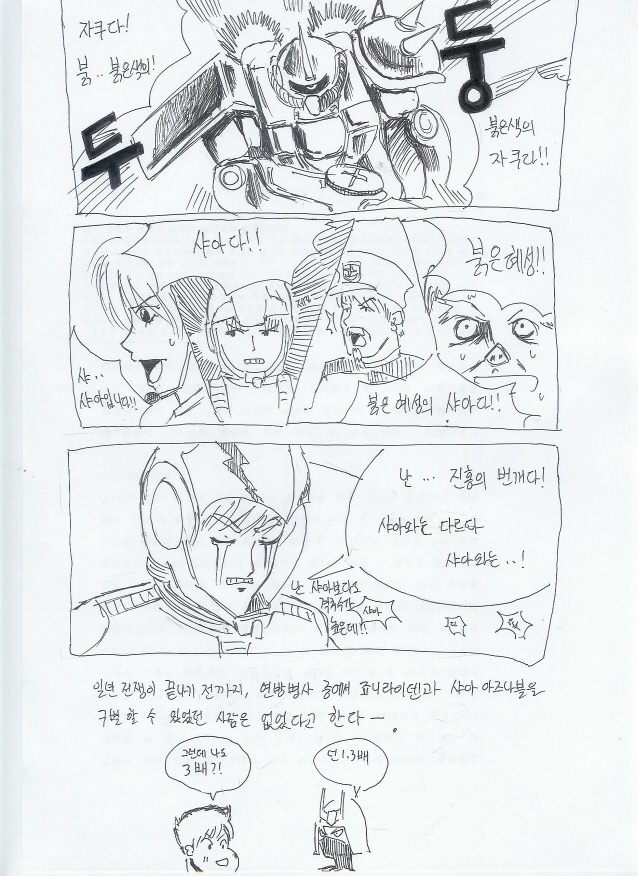 자쿠다!
붉..붉은색의!
두
둥
붉은색의
자쿠다!!
샤아다!!
샤..
샤아입니다!!
붉은혜성!!
붉은 혜성의 샤아다!!
난... 진홍의 번개다!
샤아와는 다르다
샤아와는..!
난 샤아보다도
격추수가
높은데!!
샤아
일년 전쟁이 끝나기 전까지, 연방병사 중에서 죠니라이덴과 샤아 아즈나블을
구별 할 수 있었던 사람은 없었다고 한다ー.
그런데 나도
3배?!
넌 1.3배